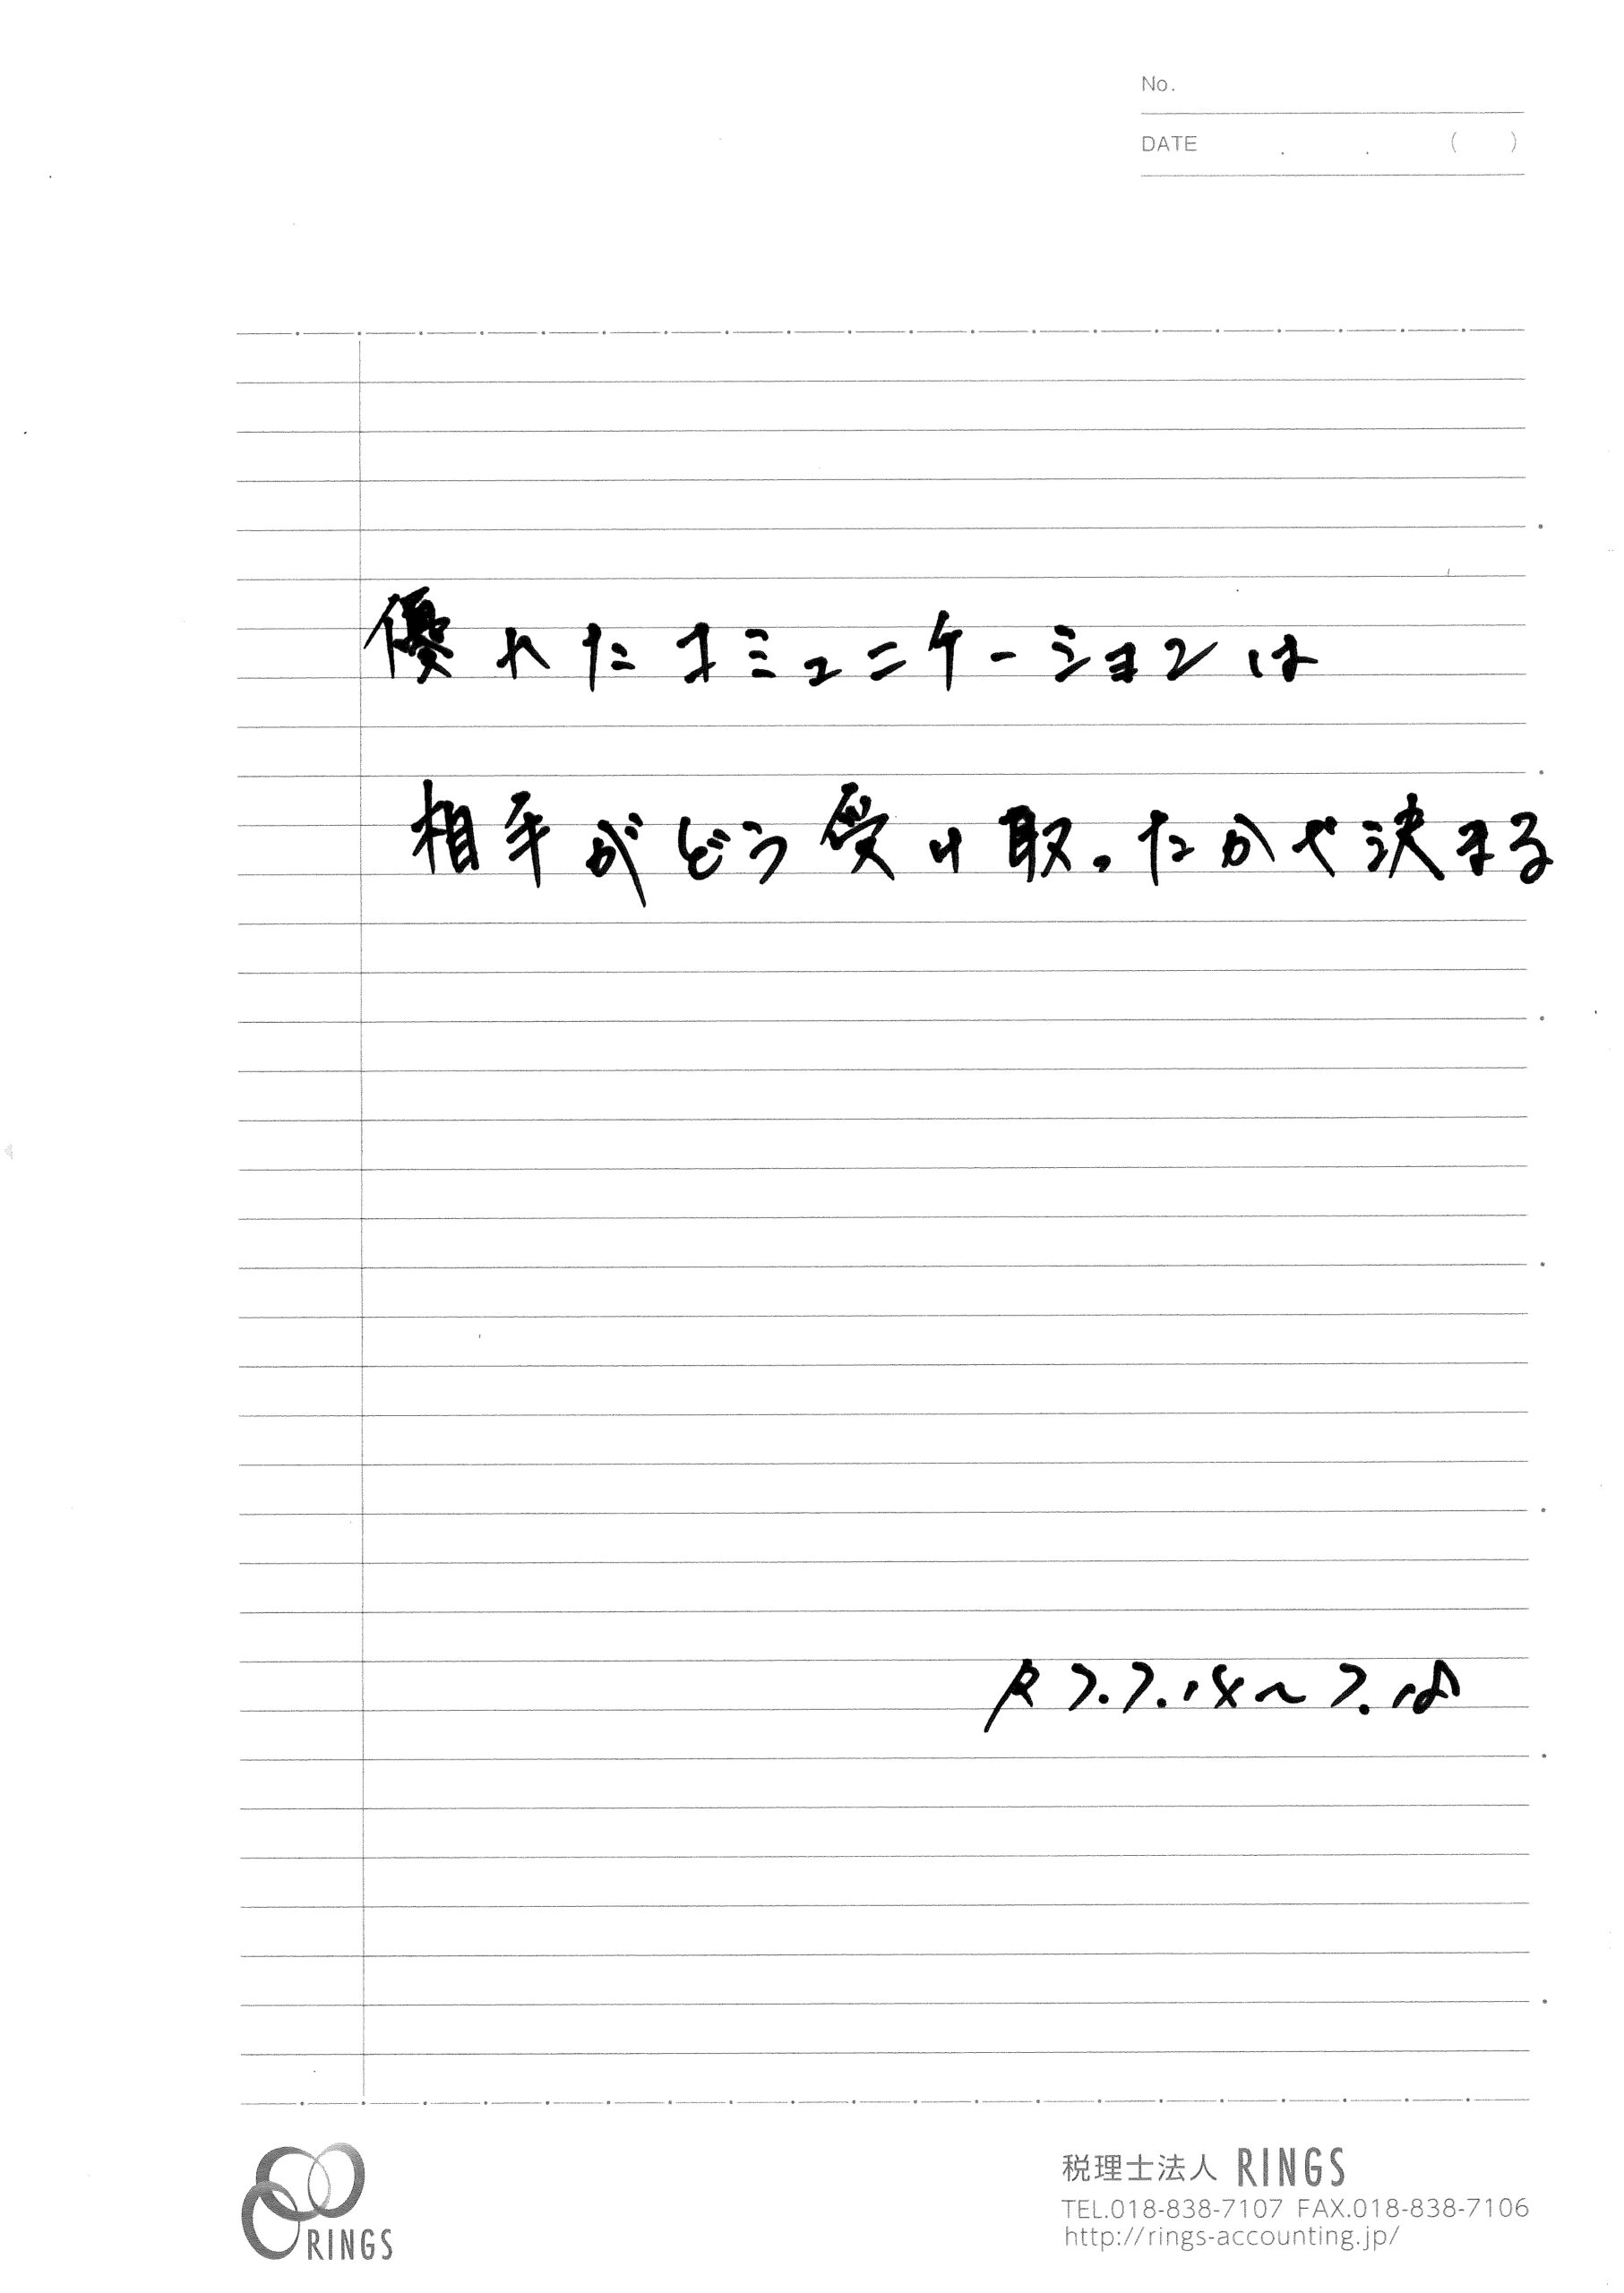 No.
DATE . . ( )
優れたコミュニケーションは
相手がどう受け取ったかで決まる
R7.7.14〜7.18
RINGS
税理士法人 RINGS
TEL.018-838-7107 FAX.018-838-7106
http://rings-accounting.jp/